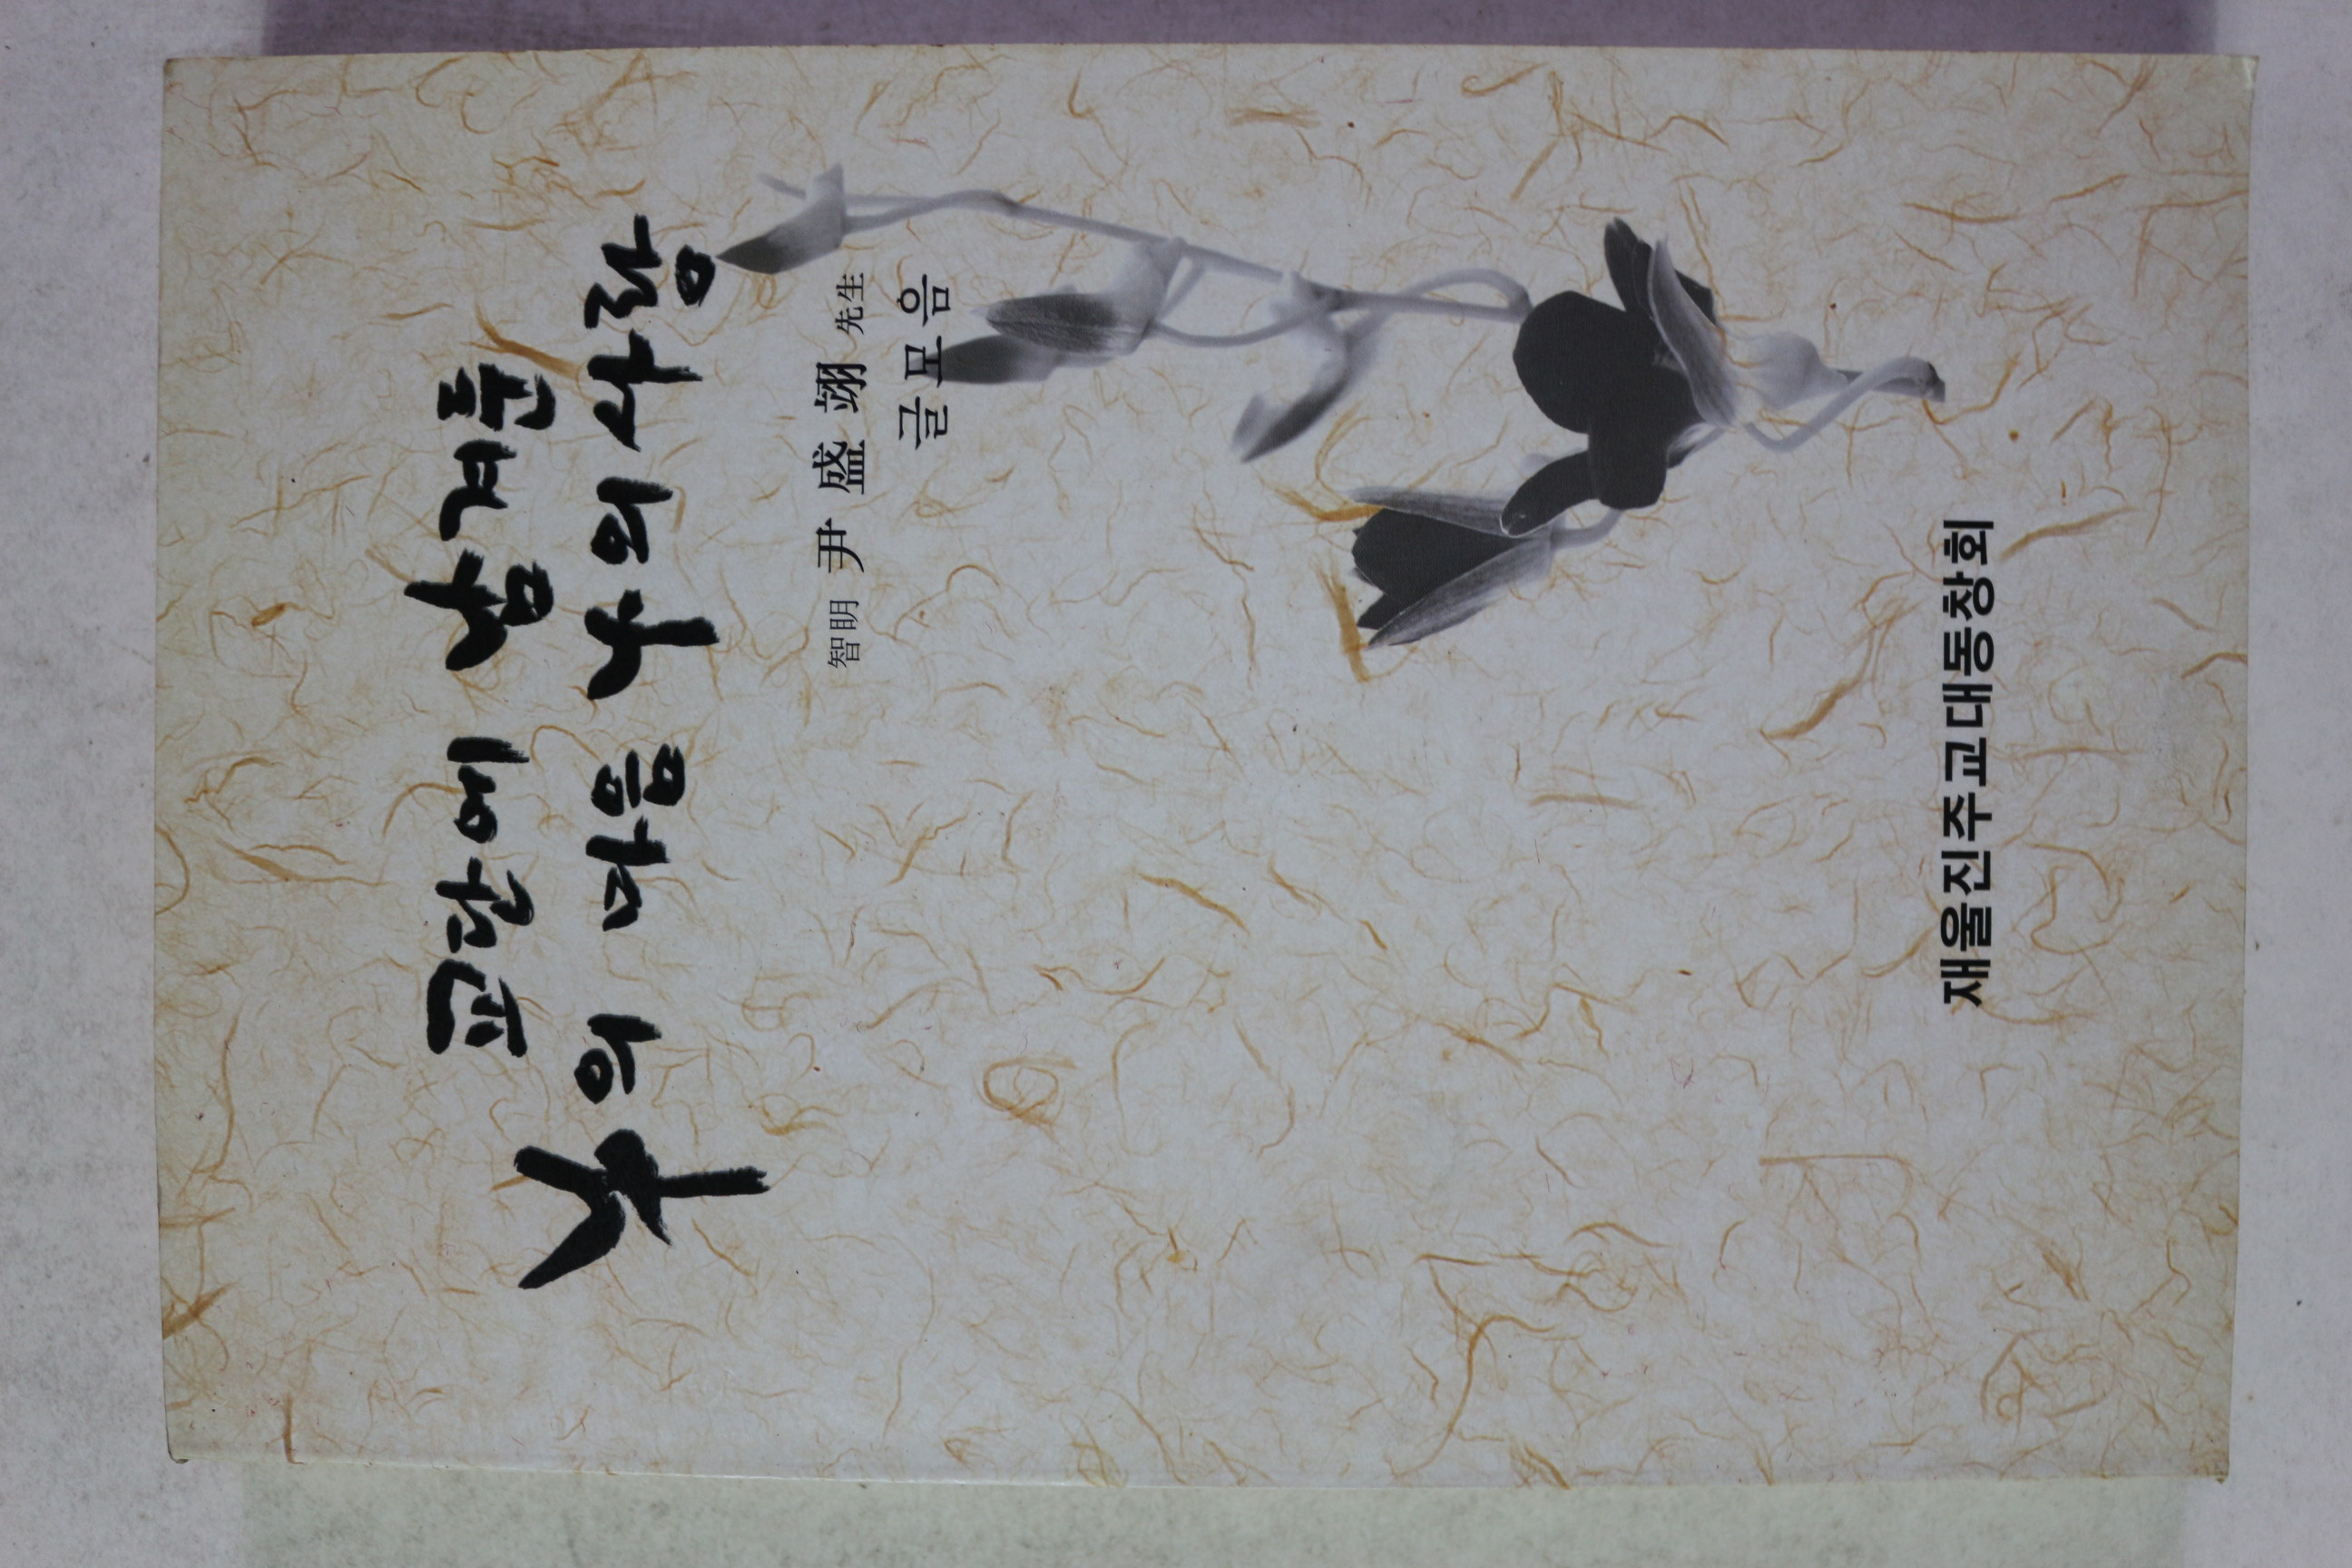 교단에 남겨둔
나의 마음 나의 사랑
智明 尹盛翊 先生
글모음
재울진주교대동창회